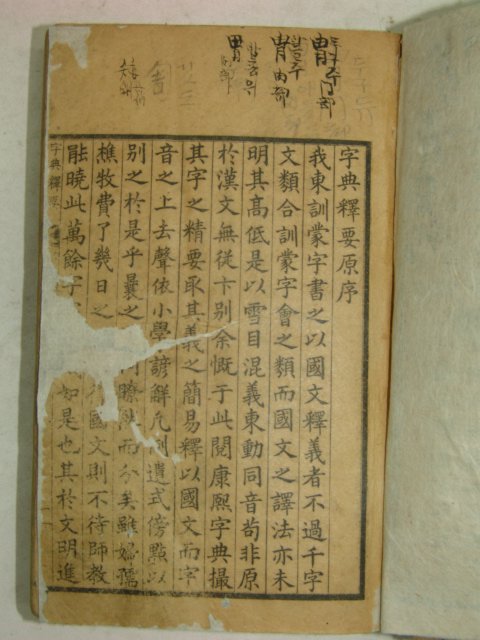 冑 투구주 冂部
冑 맏아들주 肉部
胃 밥통위 肉部
字典釋要原序
我東訓蒙字書之以國文釋義者不過千字
文類合訓蒙字會之類而國文之譯法亦未
明其高低是以雪目混義東動同音苟非原
於漢文無從卞别余慨于此閱康熙字典撮
其字之精要取其義之簡易釋以國文而字
音之上去聲依小學諺觧凡例遺式傍㸃以
别之於是乎曩之 瞭然而分矣雖婦孺
樵牧費了幾日之 國文則不待師教
能曉此萬餘字 如是也其於文明進
字典釋要